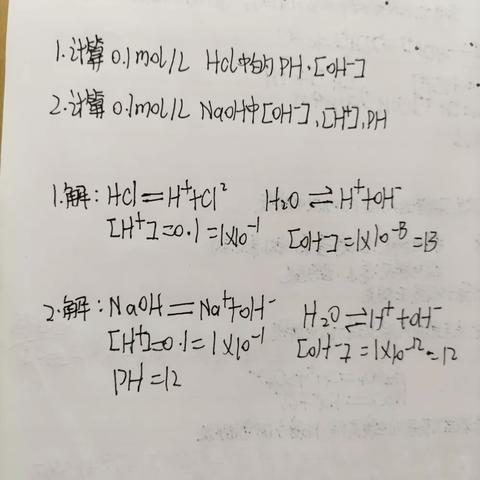 1.计算 0.1mol/L Hcl中的PH.[OH⁻]
2.计算 0.1mol/L NaOH中[OH⁻],[H⁺],PH
1.解: HCl=H⁺+Cl² H₂O⇌H⁺+OH⁻
[H⁺]=0.1=1x10⁻¹ [OH⁻]=1x10⁻¹³=13
2.解: NaOH=Na⁺+OH⁻ H₂O⇌H⁺+OH⁻
[H⁺]=0.1=1x10⁻¹ [OH⁻]=1x10⁻¹²=12
PH=12